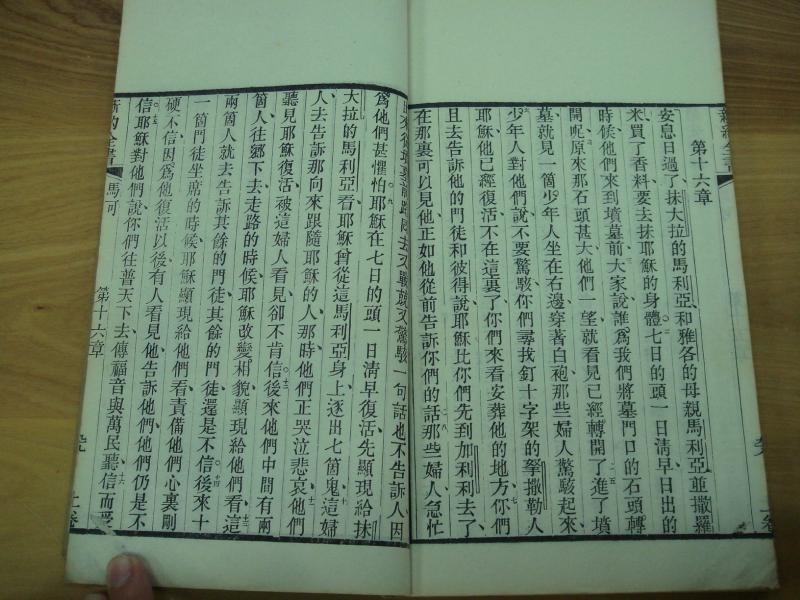 第十六章
安息日過了抹大拉的馬利亞和雅各的母親馬利亞並撒羅
米買了香料要去抹耶穌的身體七日的頭一日淸早日出的
時候他們來到墳墓前大家說誰爲我們將墓門口的石頭轉
開呢原來那石頭甚大他們一望就看見已經轉開了進了墳
墓就見一箇少年人坐在右邊穿著白袍那些婦人驚駭起來
少年人對他們說不要驚駭你們尋找釘十字架的拏撒勒人
耶穌他已經復活不在這裏了你們來看安葬他的地方你們
且去告訴他的門徒和彼得說耶穌比你們先到加利利去了
在那裏可以見他正如他從前告訴你們的話那些婦人急忙
去又戰兢又驚駭一句話也不告訴人因
爲他們甚懼怕耶穌在七日的頭一日淸早復活先顯現給抹
大拉的馬利亞看耶穌曾從這馬利亞身上逐出七箇鬼這婦
人去告訴那向來跟隨耶穌的人那時他們正哭泣悲哀他們
聽見耶穌復活被這婦人看見卻不肯信後來他們中間有兩
箇人往鄉下去走路的時候耶穌改變相貌顯現給他們看這
兩箇人就去告訴其餘的門徒其餘的門徒還是不信後來十
一箇門徒坐席的時候耶穌顯現給他們看責備他們心裏剛
硬不信因爲他復活以後有人看見他告訴他們他們仍是不
信耶穌對他們說你們往普天下去傳福音與萬民聽信而受
新約全書
馬可
第十六章